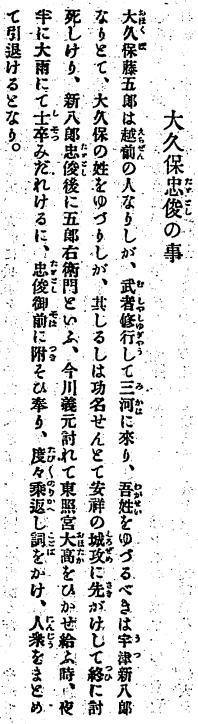 大久保忠俊の事
大久保藤五郎は越前の人なりしが、武者修行して三河に來り、吾姓をゆづるべきは宇津新八郎
なりとて、大久保の姓をゆづりしが、其しるしは功名せんとて安祥の城攻に先がけして終に討
死しけり、新八郎忠俊後に五郎右衛門といふ、今川義元討れて東照宮大高をひかせ給ふ時、夜
半に大雨にて士卒みだれけるに、忠俊御前に附そひ奉り、度々乘返し詞をかけ、人衆をまとめ
て引退けるとなり。